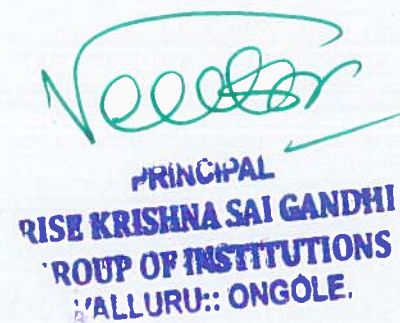 PRINCIPAL
RISE KRISHNA SAI GANDHI
ROUP OF INSTITUTIONS
VALLURU:: ONGOLE.